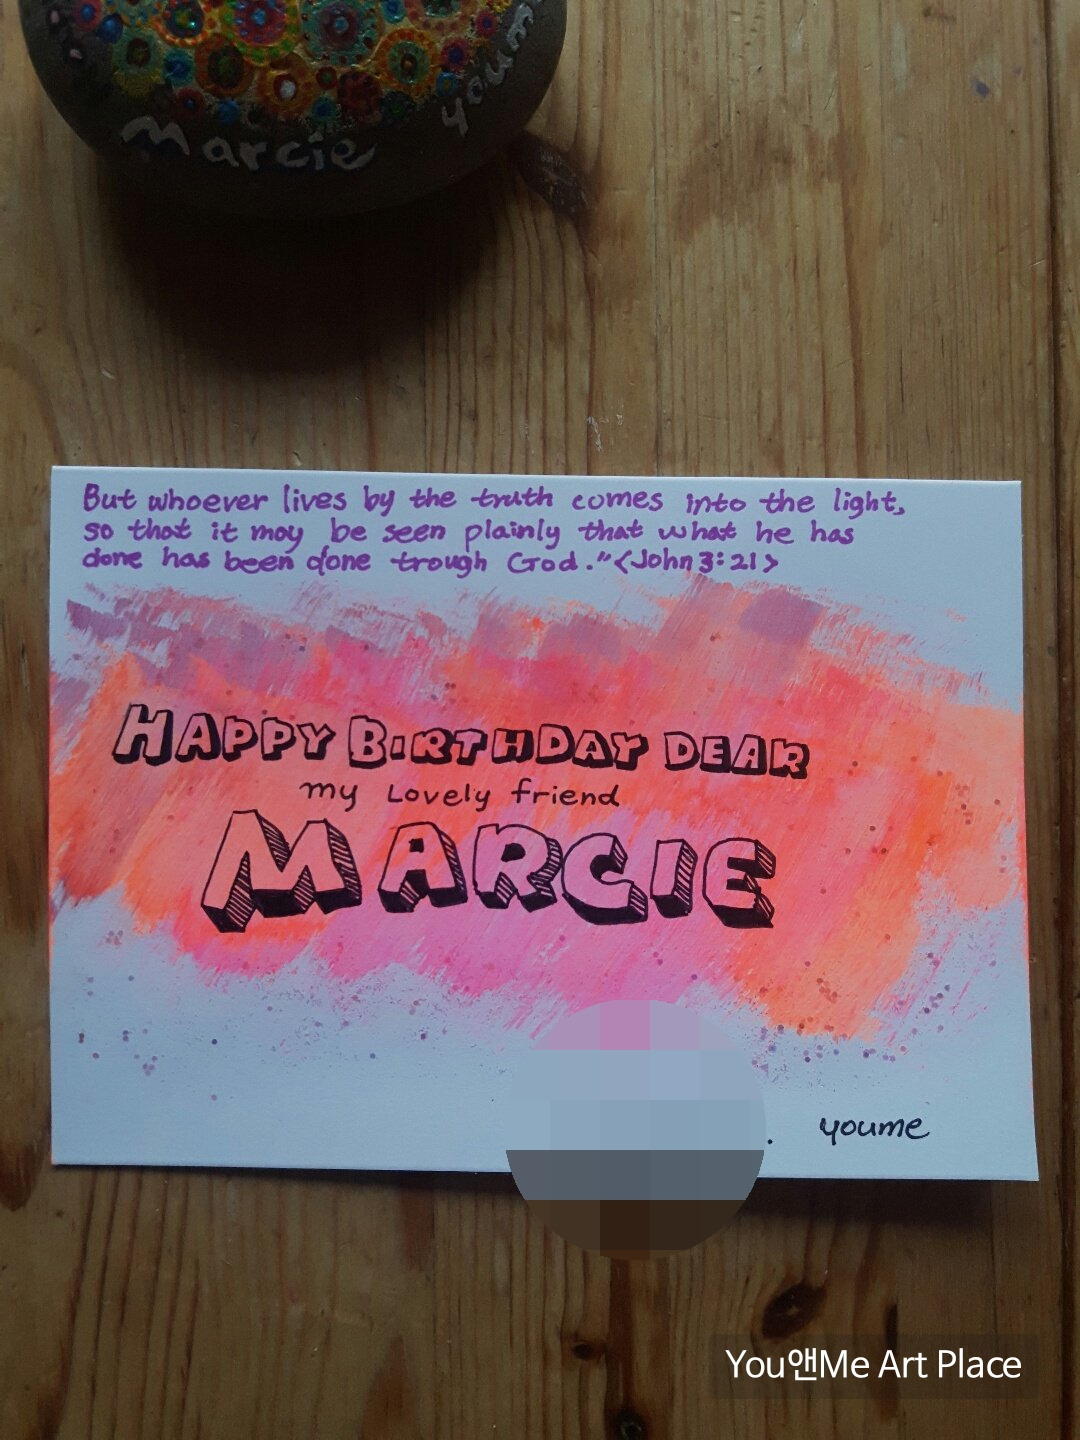 Marcie
youm
But whoever lives by the truth comes into the light,
so that it may be seen plainly that what he has
done has been done trough God."<John 3:21>
HAPPY BIRTHDAY DEAR
my Lovely friend
MARCIE
. youme
You앤Me Art Place